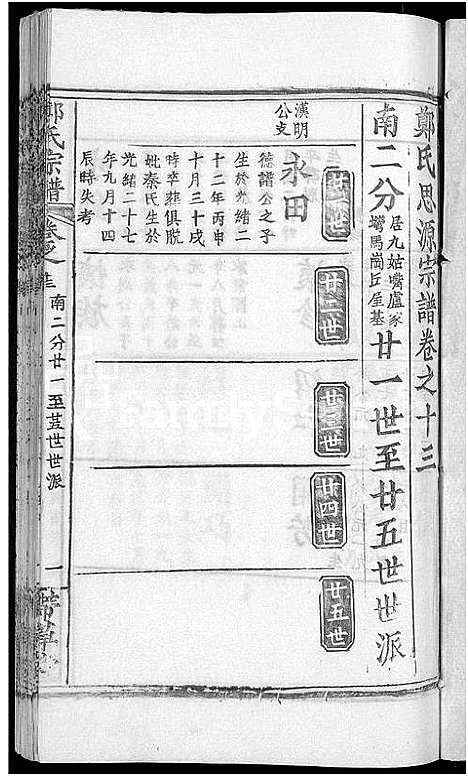 鄭氏思源宗譜卷之十三
南二分居九姑嘴盧家塆馬崗丘屋基廿一世至廿五世世派
廿一世
廿二世
廿三世
廿四世
廿五世
漢明
公支
永田
德譜公之子
生於光緒二
十二年丙申
十月三十戌
時卒葬俱脱
妣秦氏生於
光緒二十七
年九月十四
辰時失考
鄭氏宗譜
卷之
南二分廿一至廿五世世派
一